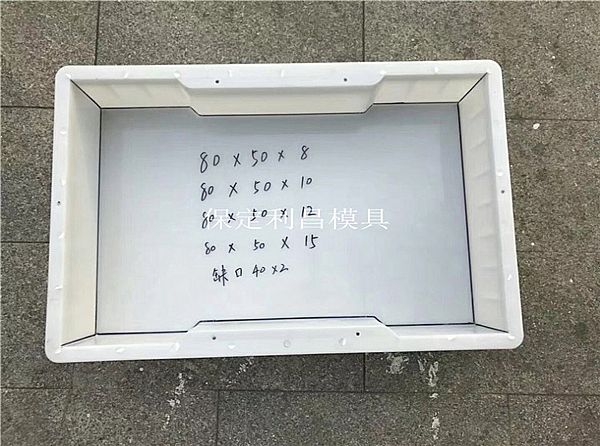 80 x 50 x 8
80 x 50 x 10
80 x 50 x 12
保定利昌模具
80 x 50 x 15
缺口 40 x 2